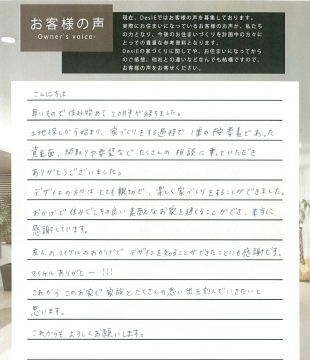 お客様の声
-Owner's voice-
現在、DesiEではお客様の声を募集しております。
実際にお住まいになっているお客様の声が、私たち
の力となり、今後のお住まいづくりを計画中の方々に
とっての貴重な参考資料となります。
DesiEの家づくりに関してや、お住まいになってから
のご感想、他社との違いなどなんでも結構ですので、
お客様の声をお寄せください。
こんにちは
早いもので住み始めて2カ月が経ちました。
土地探しから始まり、家づくりをする過程で1番の心配事であった
資金面、間取りや要望など たくさんの相談に乗っていただき
ありがとうございました。
デザイエのみなさん とても親切で、楽しく家づくりをすることができました。
おかげで住みごこちの良い素敵なお家を建てることができ、本当に
感謝しています。
友人のマイケルのおかげで デザイエを知ることができたことにも感謝です。
マイケルありがとー!!!
これから このお家で 家族とたくさんの思い出を刻んでいきたいと
思います。
これからも よろしくお願いします。